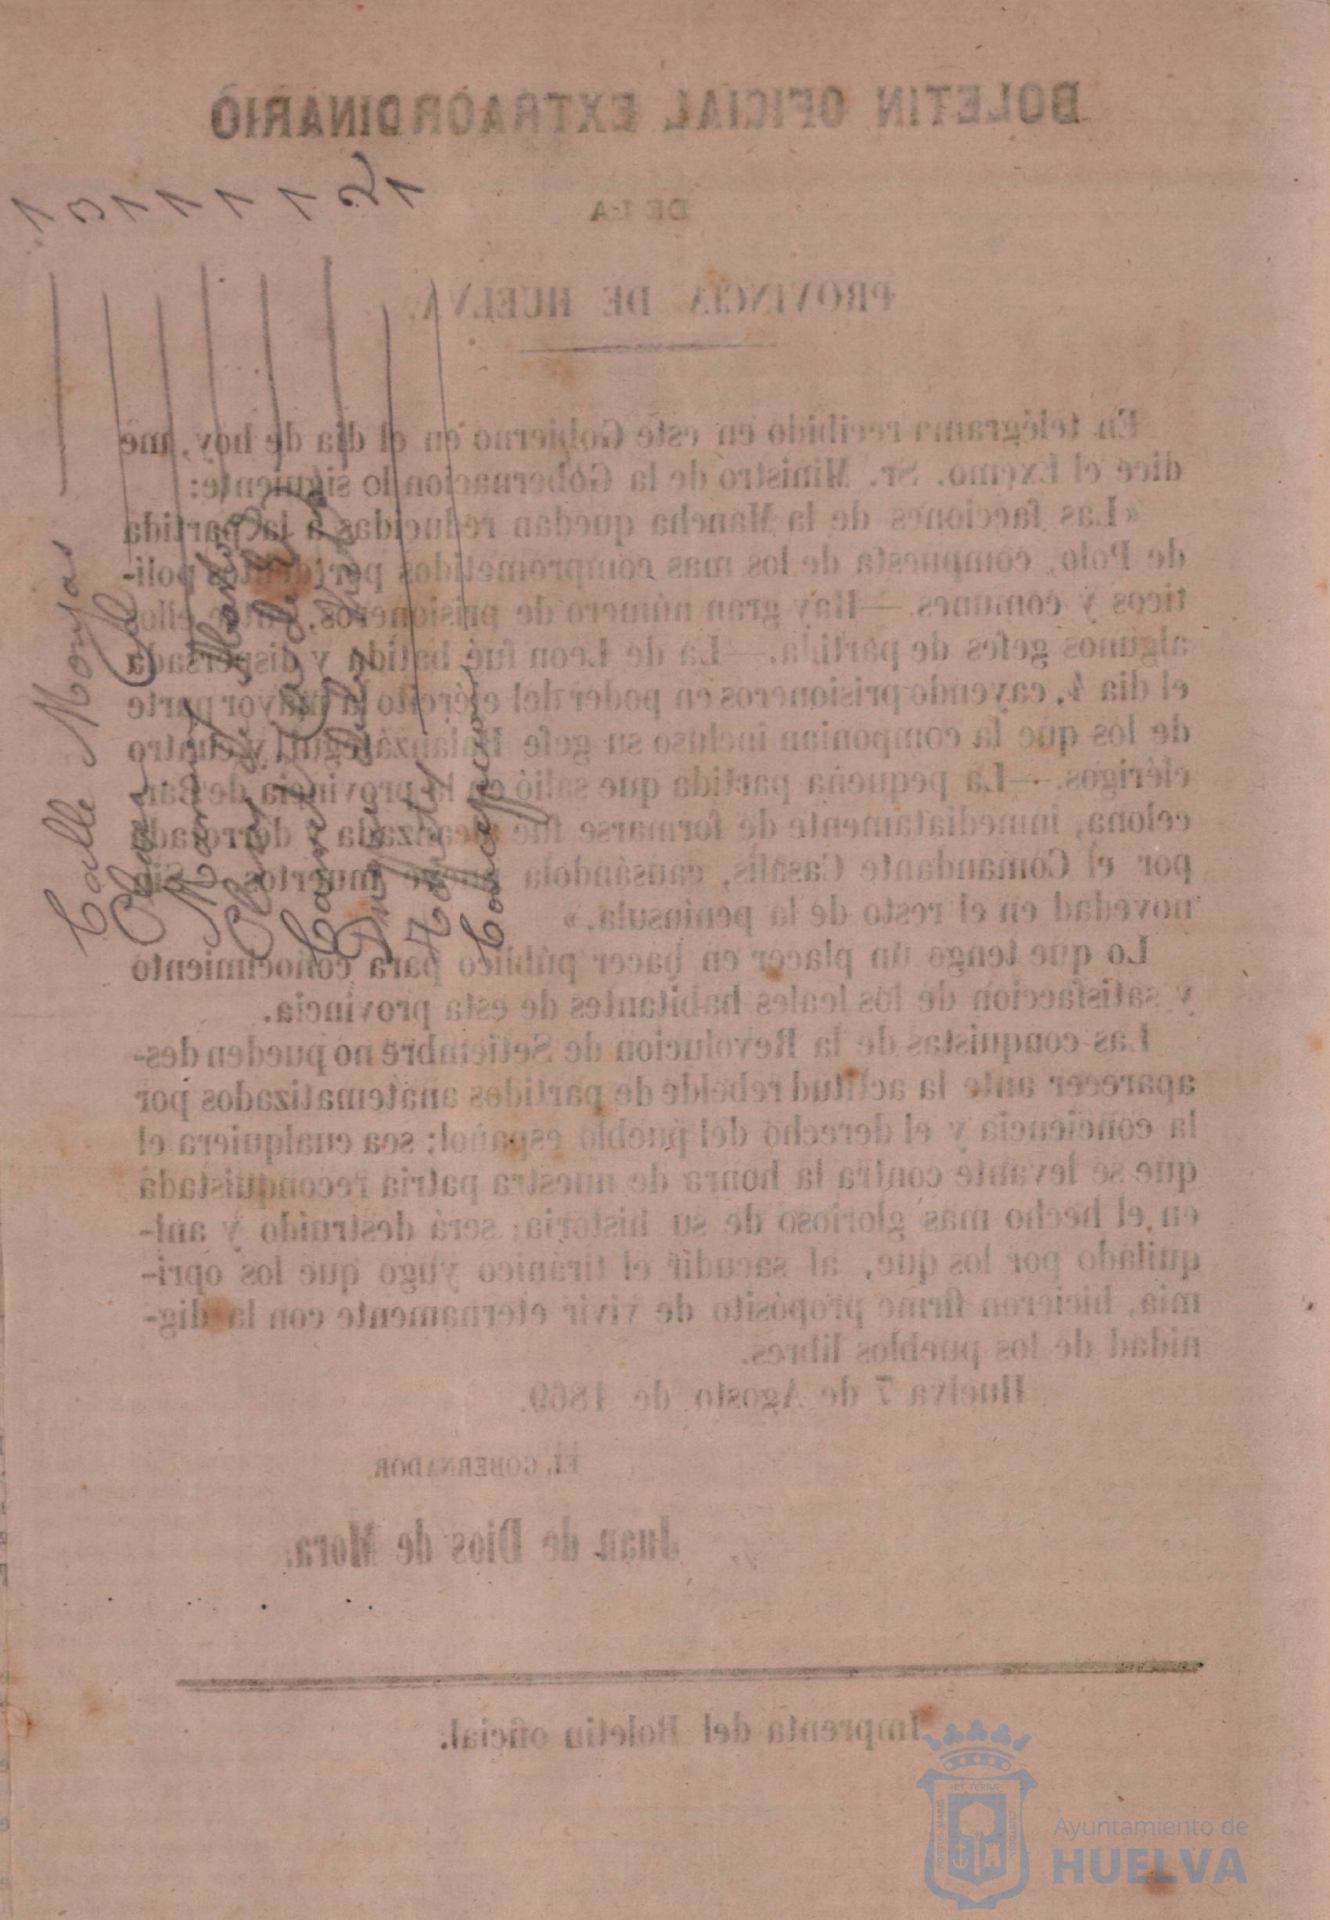 BOLETIN OFICIAL EXTRAORDINARIO
DE LA
PROVINCIA DE HUELVA.
En telégrama recibido en este Gobierno en el dia de hoy, me
dice el Excmo. Sr. Ministro de la Gobernacion lo siguiente:
«Las facciones de la Mancha quedan reducidas á la partida
de Polo, compuesta de los mas comprometidos por delitos polí-
ticos y comunes.—Hay gran número de prisioneros, entre ellos
algunos gefes de partida.—La de Leon fué batida y dispersada
el dia 4, cayendo prisioneros en poder del ejército la mayor parte
de los que la componian incluso su gefe Balanzátegui y cuatro
clérigos.—La pequeña partida que salió en la provincia de Bar-
celona, inmediatamente de formarse fué alcanzada y derrotada
por el Comandante Casalis, causándola muertos. Sin
novedad en el resto de la península.»
Lo que tengo un placer en hacer público para conocimiento
y satisfaccion de los leales habitantes de esta provincia.
Las conquistas de la Revolucion de Setiembre no pueden des-
aparecer ante la actitud rebelde de partidos anatematizados por
la conciencia y el derecho del pueblo español: sea cualquiera el
que se levante contra la honra de nuestra patria reconquistada
en el hecho mas glorioso de su historia; será destruido y ani-
quilado por los que, al sacudir el tiránico yugo que los opri-
mia, hicieron firme propósito de vivir eternamente con la dig-
nidad de los pueblos libres.
Huelva 7 de Agosto de 1869.
EL GOBERNADOR
Juan de Dios de Mora.
Imprenta del Boletin oficial.
Calle Monjas 1
3
1
1
1
1
2
Concepcion 1
PORTUS MARIS
ET TERRAE
CUSTODIA
Ayuntamiento de
HUELVA